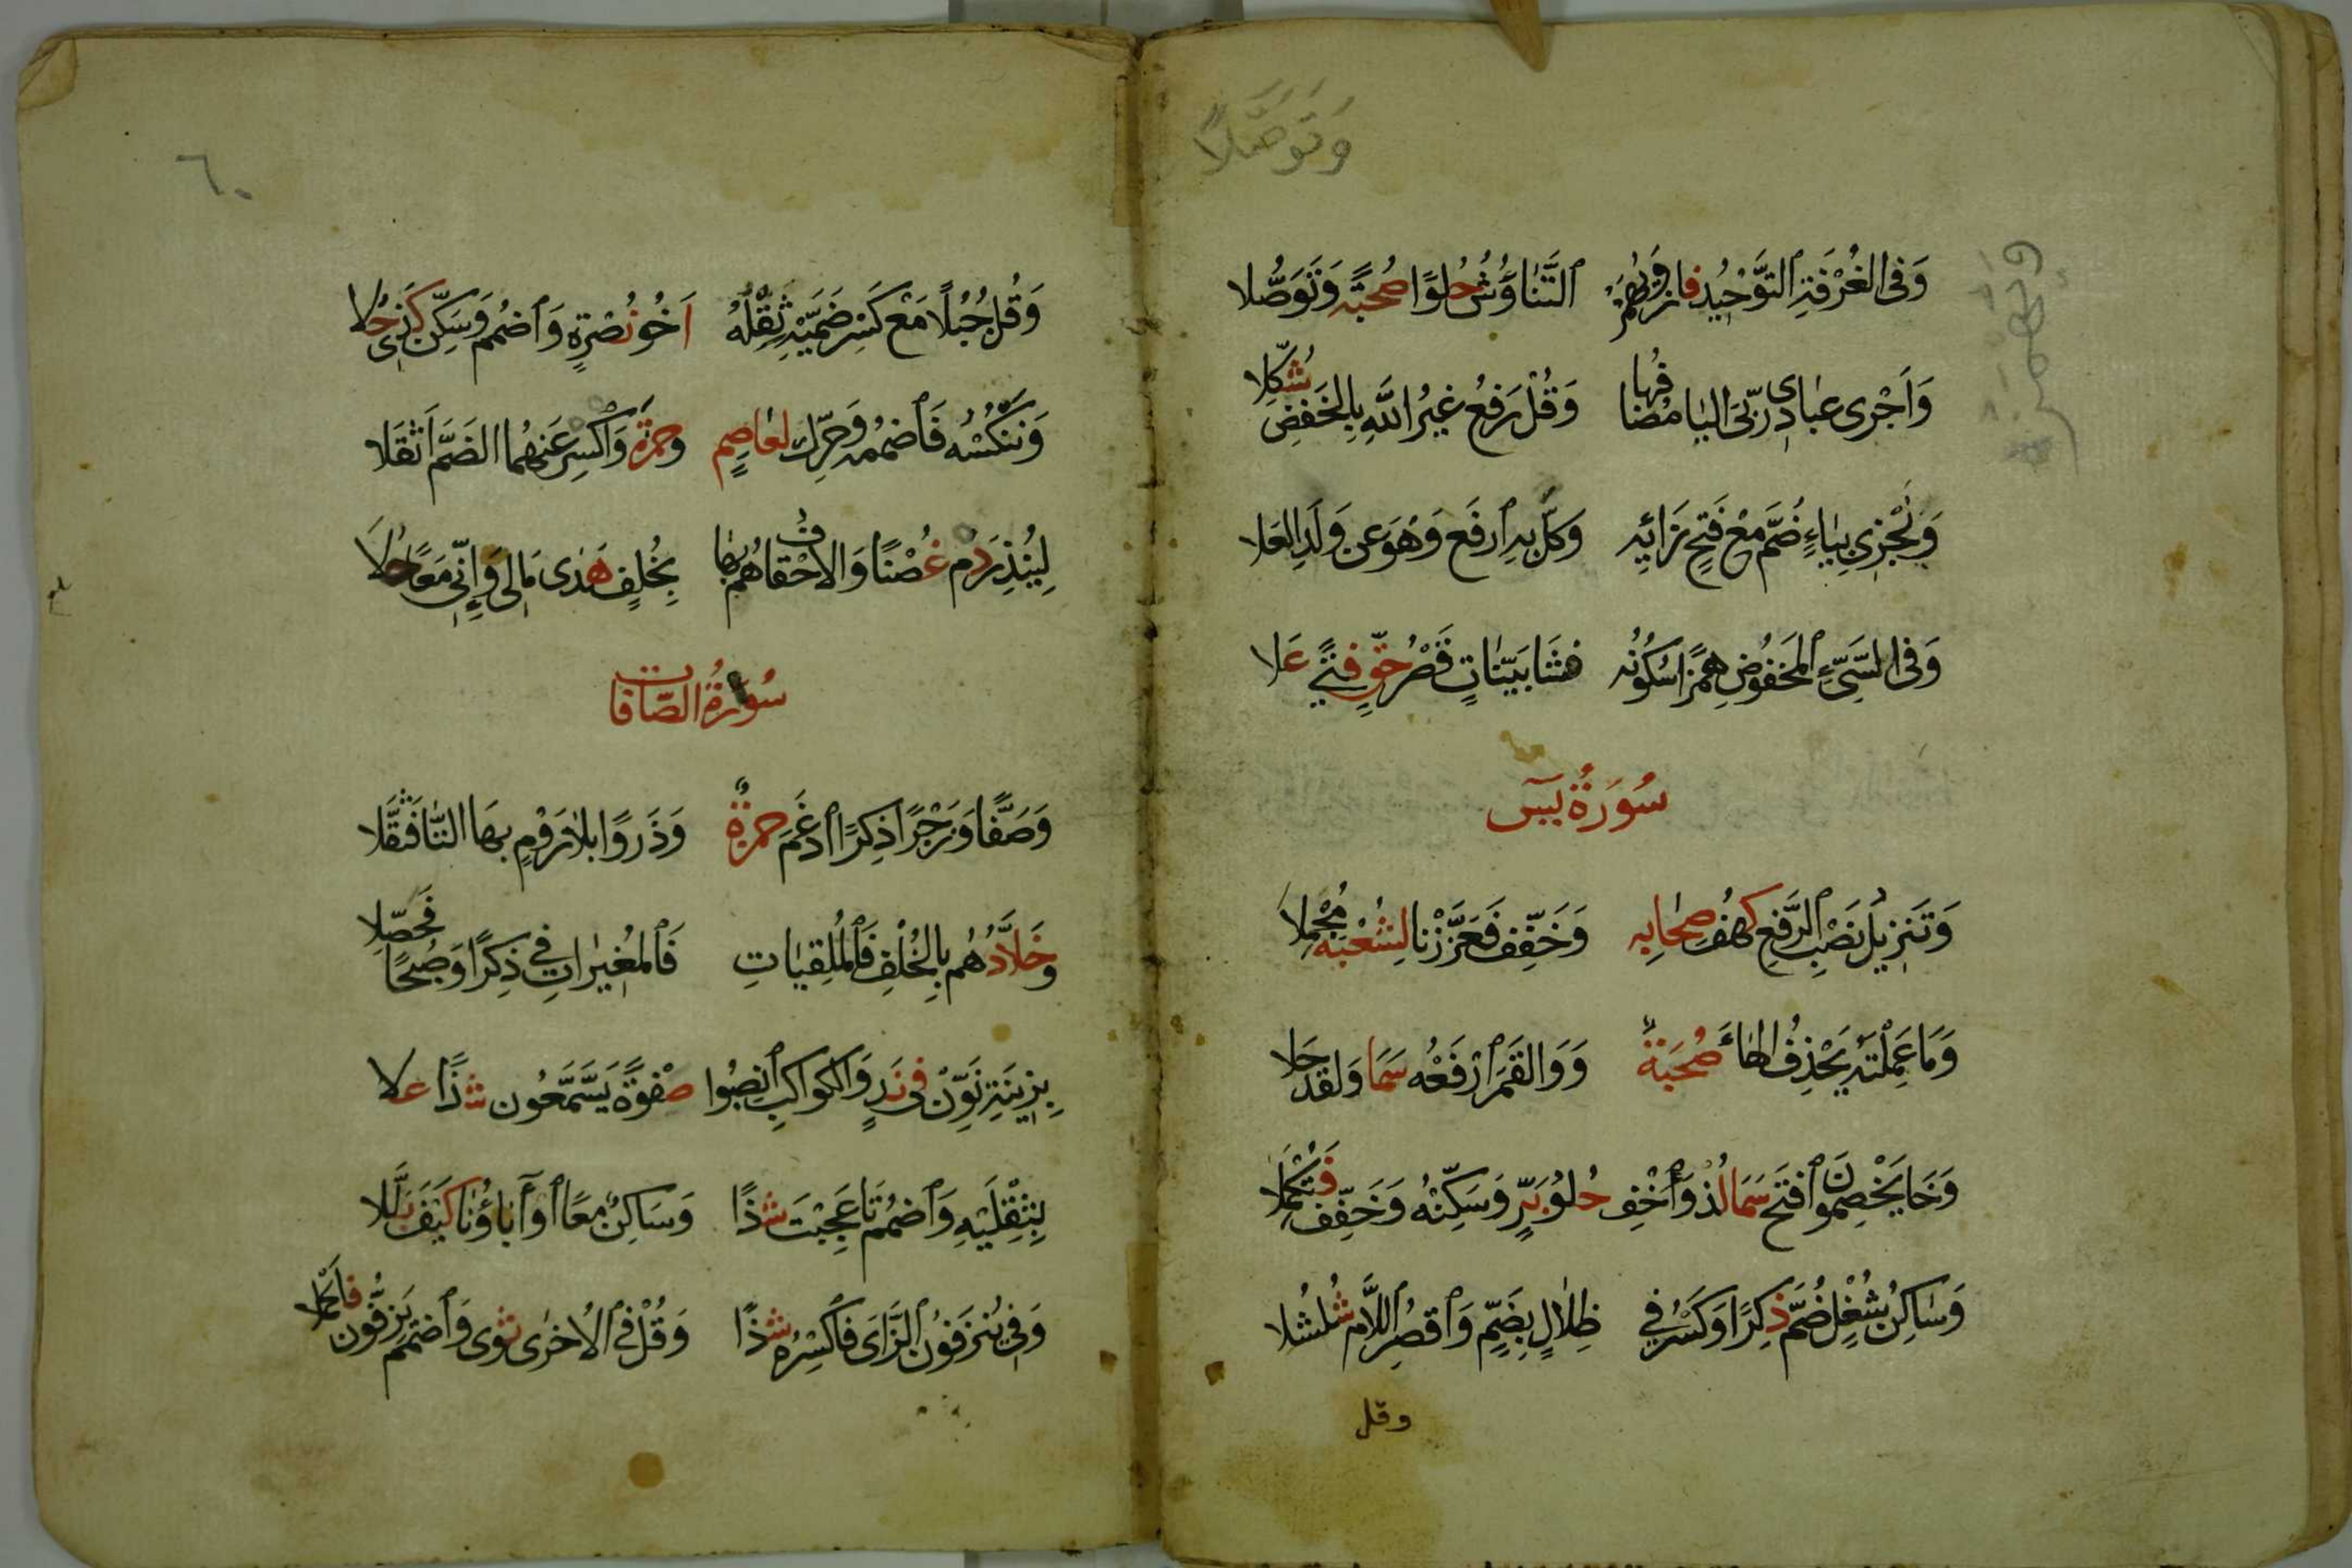 وَتَوَصَّلَا
وَفِى الغُرْفَةِ التَّوْحِيدُ فَازَ وَيُهْمَزُ التَّنَاوُشُ حُلْوًا صُحْبَةً وَتَوَصُّلَا
وَاَجْرِى عِبَادِى رَبِّىَ اليَا مُضَافُهَا وَقُلْ رَفْعُ غَيْرُ اللهِ بِالخَفْضِ شُكِّلَا
وَنَجْزِى بِيَاءٍ ضُمَّ مَعْ فَتْحِ زَائِهِ وَكُلَّ بِهِ ارْفَعْ وَهُوَ عَنْ وَلَدِ العَلَا
وَفِى السَّيِّئِ المَخْفُوضِ هَمْزًا سُكُونُهُ فَشَا بَيِّنَاتٍ قَصْرُ حَقٍّ فَتًى عَلَا
سُورَةُ يٓسٓ
وَتَنْزِيلُ نَصْبُ الرَّفْعِ كَهْفُ صِحَابِهِ وَخَفِّفْ فَعَزَّزْنَا لِشُعْبَةَ مُجْمِلَا
وَمَا عَمِلَتْهُ يَحْذِفُ الهَاءَ صُحْبَةٌ وَوَالقَمَرَ ارْفَعْهُ سَمَا وَلَقَدْ حَلَا
وَخَا يَخْصِمُونَ افْتَحْ سَمَا لُذْ وَأَخْفِ حُلْوُ بَرٍّ وَسَكِّنْهُ وَخَفِّفْ فَتُكْمِلَا
وَسَاكِنُ شُغْلٍ ضُمَّ ذِكْرًا وَكَسْرُ فِى ظِلَالٍ بِضَمٍّ وَاقْصُرِ اللَّامَ شُلْشُلَا
وقل
٦٠
وَقُلْ جُبُلًا مَعْ كَسْرِ ضَمَّيْهِ ثِقْلُهُ اَخُو نُصْرَةٍ وَاضْمُمْ وَسَكِّنْ كَذِى حُلَا
وَنَنْكُسْهُ فَاضْمُمْهُ وَحَرِّكْ لِعَاصِمٍ وَحَمْزَةَ وَاكْسِرْ عَنْهُمَا الضَّمَّ اَثْقَلَا
لِيُنْذِرَ دُمْ غُصْنًا وَالاحْقَافُ هُمْ بِهَا بِخُلْفٍ هَدَى مَالِى وَإِنِّى مَعًا حُلَا
سُورَةُ الصَّافَّات
وَصَفًّا وَزَجْرًا ذِكْرًا ادْغَمَ حَمْزَةٌ وَذَرْوًا بِلَا رَوْمٍ بِهَا التَّا فَثَقَّلَا
وَخَلَّادُهُمْ بِالخُلْفِ فَالمُلْقِيَاتِ فَالمُغِيرَاتِ فِى ذِكْرًا وَصُبْحًا فَحَصِّلَا
بِزِينَةِ نَوِّنْ فِى نَدٍ وَالكَوَاكِبِ انْصِبُوا صَفْوَةً يَسَّمَّعُونَ شَذًا عَلَا
بِثِقْلَيْهِ وَاضْمُمْ تَا عَجِبْتَ شَذًا وَسَاكِنٌ مَعًا أَوْ آبَاؤُنَا كَيْفَ بَلَّلَا
وَفِى يُنْزَفُونَ الزَّاىَ فَاكْسِرْهُ شَذًا وَقُلْ فِى الاُخْرَى ثَوَى وَاضْمُمْ يَزِفُّونَ فَاكْمُلَا